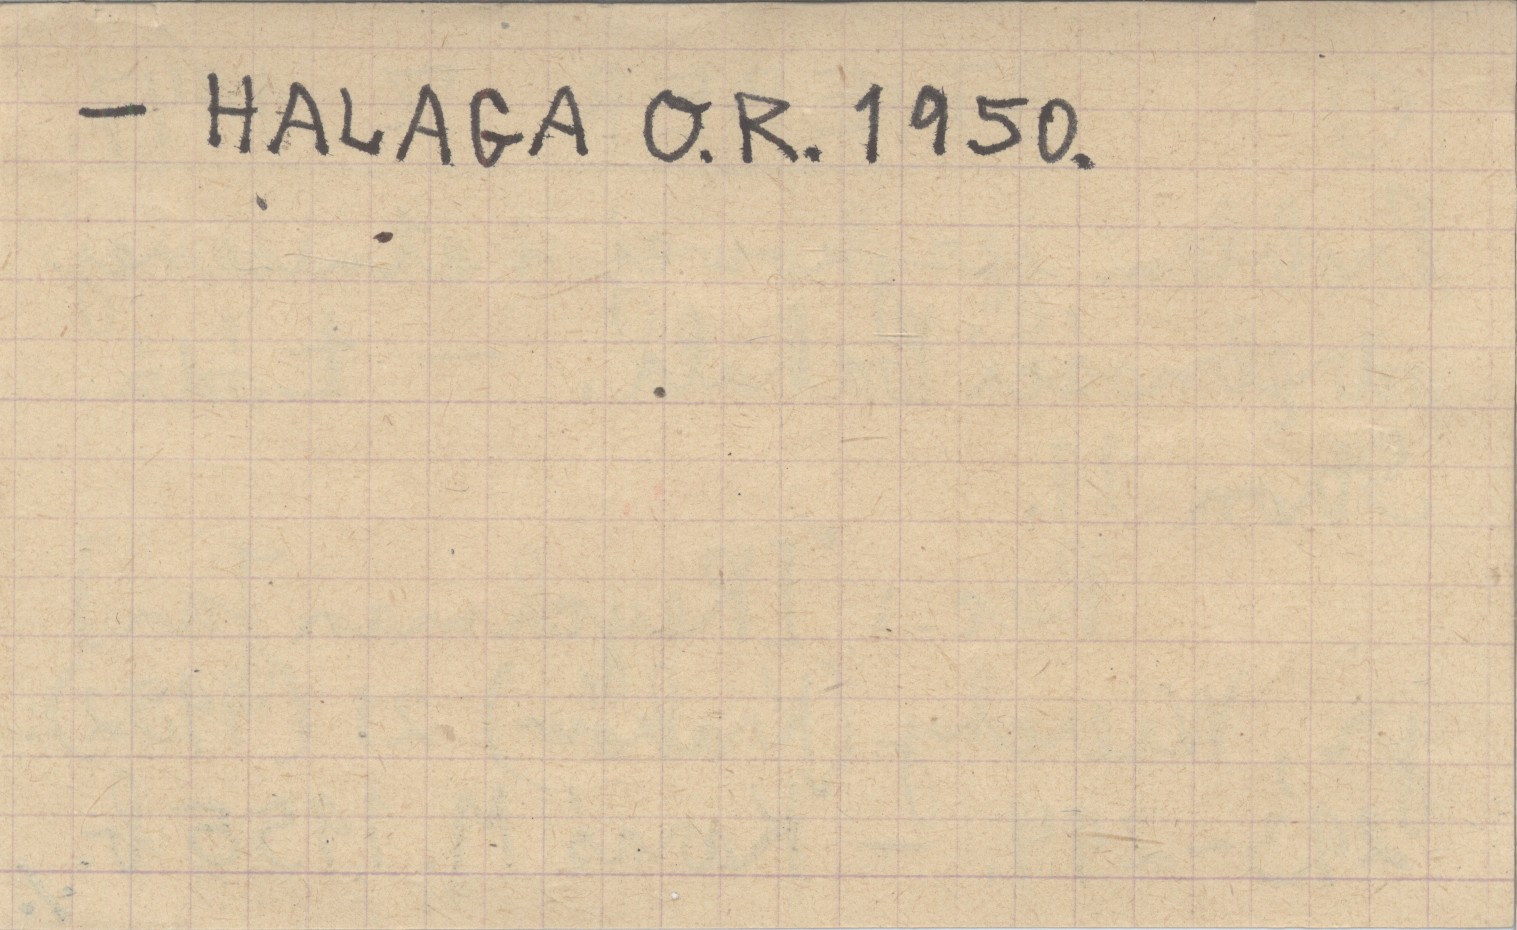 — HALAGA O.R. 1950.